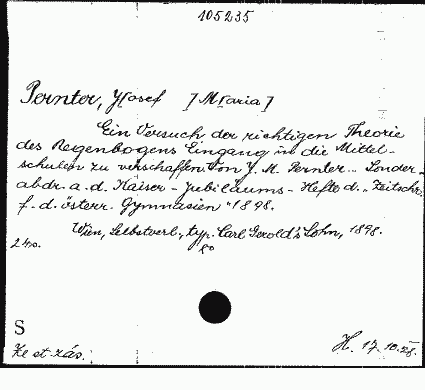 105235
Pernter, J[osef] [M[aria]
Ein Versuch der richtigen Theorie
des Regenbogens Eingang in die Mittel-
schulen zu verschaffen. Von J. M. Pernter... Sonder-
abdr. a. d. Kaiser-Jubiläums-Hefte d. „Zeitschr.
f. d. österr. Gymnasien" 1898.
Wien, Selbstverl., typ. Carl Gerold's Sohn, 1898.
8°
S
H. 17.10.25.